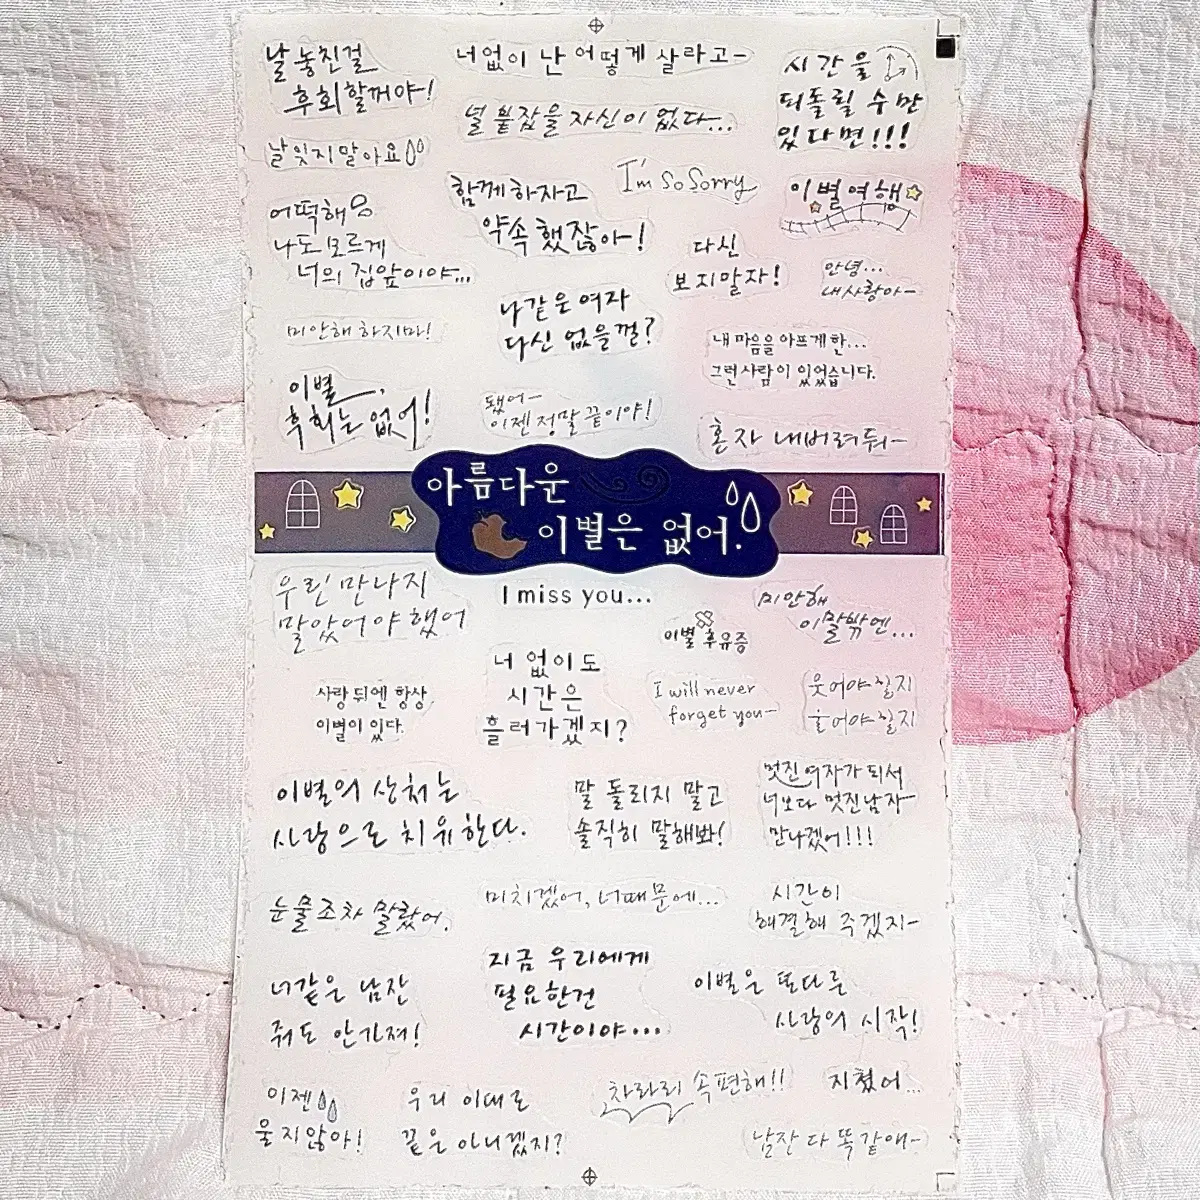 날 놓친걸
후회할꺼야!
너없이 난 어떻게 살라고~
시간을
되돌릴 수만
있다면!!!
널 붙잡을 자신이 없다...
날잊지말아요
함께하자고
약속했잖아!
I'm So Sorry
이별여행
어떡해
나도모르게
너의 집앞이야...
다신
보지말자!
안녕...
내사랑아~
나같은여자
다신 없을껄?
미안해 하지마!
내 마음을 아프게 한...
그런사람이 있었습니다.
이별,
후회는 없어!
됐어~
이젠 정말 끝이야!
혼자 내버려둬~
아름다운
이별은 없어.
우린 만나지
말았어야했어
I miss you...
미안해
이말밖엔...
이별 후유증
너 없이도
시간은
흘러가겠지?
사랑 뒤엔 항상
이별이 있다.
I will never
forget you~
웃어야할지
울어야할지
이별의 상처는
사랑으로 치유한다.
말 돌리지 말고
솔직히 말해봐!
멋진여자가 되서
너보다 멋진남자
만나겠어!!!
눈물조차 말랐어.
미치겠어, 너때문에...
시간이
해결해 주겠지~
너같은 남잔
줘도 안가져!
지금 우리에게
필요한건
시간이야...
이별은 또다른
사랑의 시작!
이젠
울지않아!
우리 이대로
끝은 아니겠지?
차라리 속편해!!
지쳤어...
남잔 다 똑같애~